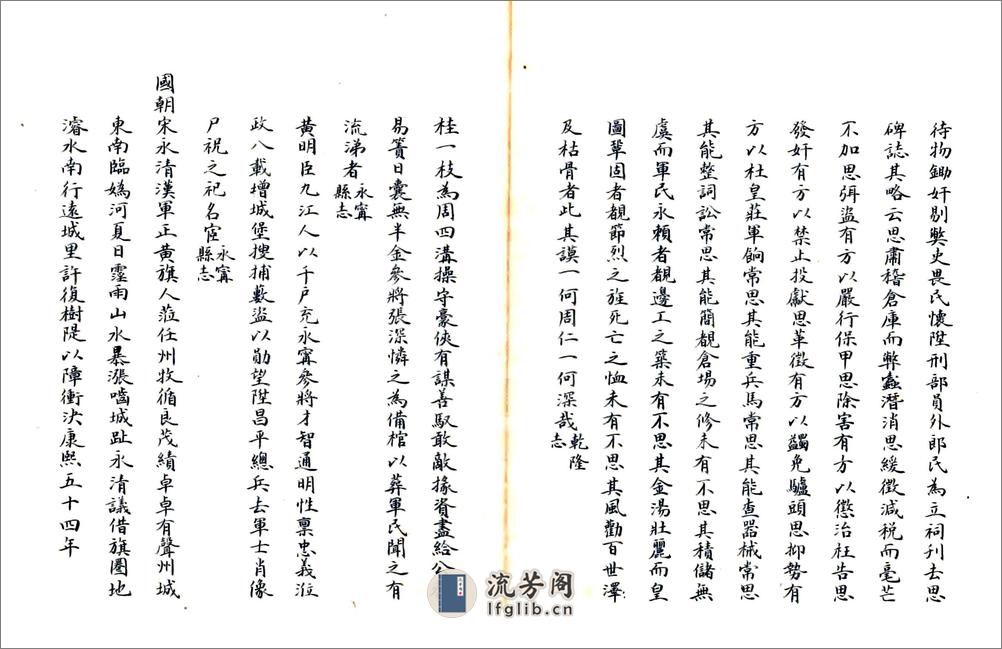 待物鋤奸剔弊吏畏民懷陞刑部員外郎民為立祠刊去思
碑誌其略云思肅稽倉庫而弊蠹潛消思緩徵減稅而毫芒
不加思弭盜有方以嚴行保甲思除害有方以懲治枉告思
發奸有方以禁止投獻思革徵有方以蠲免驢頭思抑勢有
方以杜皇莊軍餉常思其能重兵馬常思其能查器械常思
其能整詞訟常思其能簡覩倉場之修未有不思其積儲無
虞而軍民永賴者覩邊工之築未有不思其金湯壯麗而皇
圖鞏固者覩節烈之旌死亡之恤未有不思其風勸百世澤
及枯骨者此其謨一何周仁一何深哉乾隆志
桂一枝為周四溝操守豪俠有謀善馭敢敵掾資盡給公
易簀日囊無半金參將張深憐之為備棺以葬軍民聞之有
流涕者永寧縣志
黃明臣九江人以千戶充永寧參將才智通明性稟忠義涖
政八載增城堡搜捕藪盜以勛望陞昌平總兵去軍士肖像
尸祝之祀名宦永寧縣志
國朝宋永清漢軍正黃旗人蒞任州牧循良茂績卓卓有聲州城
東南臨媯河夏日霪雨山水暴漲嚙城趾永清議借旗圈地
濬水南行遠城里許復樹隄以障衝決康熙五十四年
流芳阁
lfglib.cn